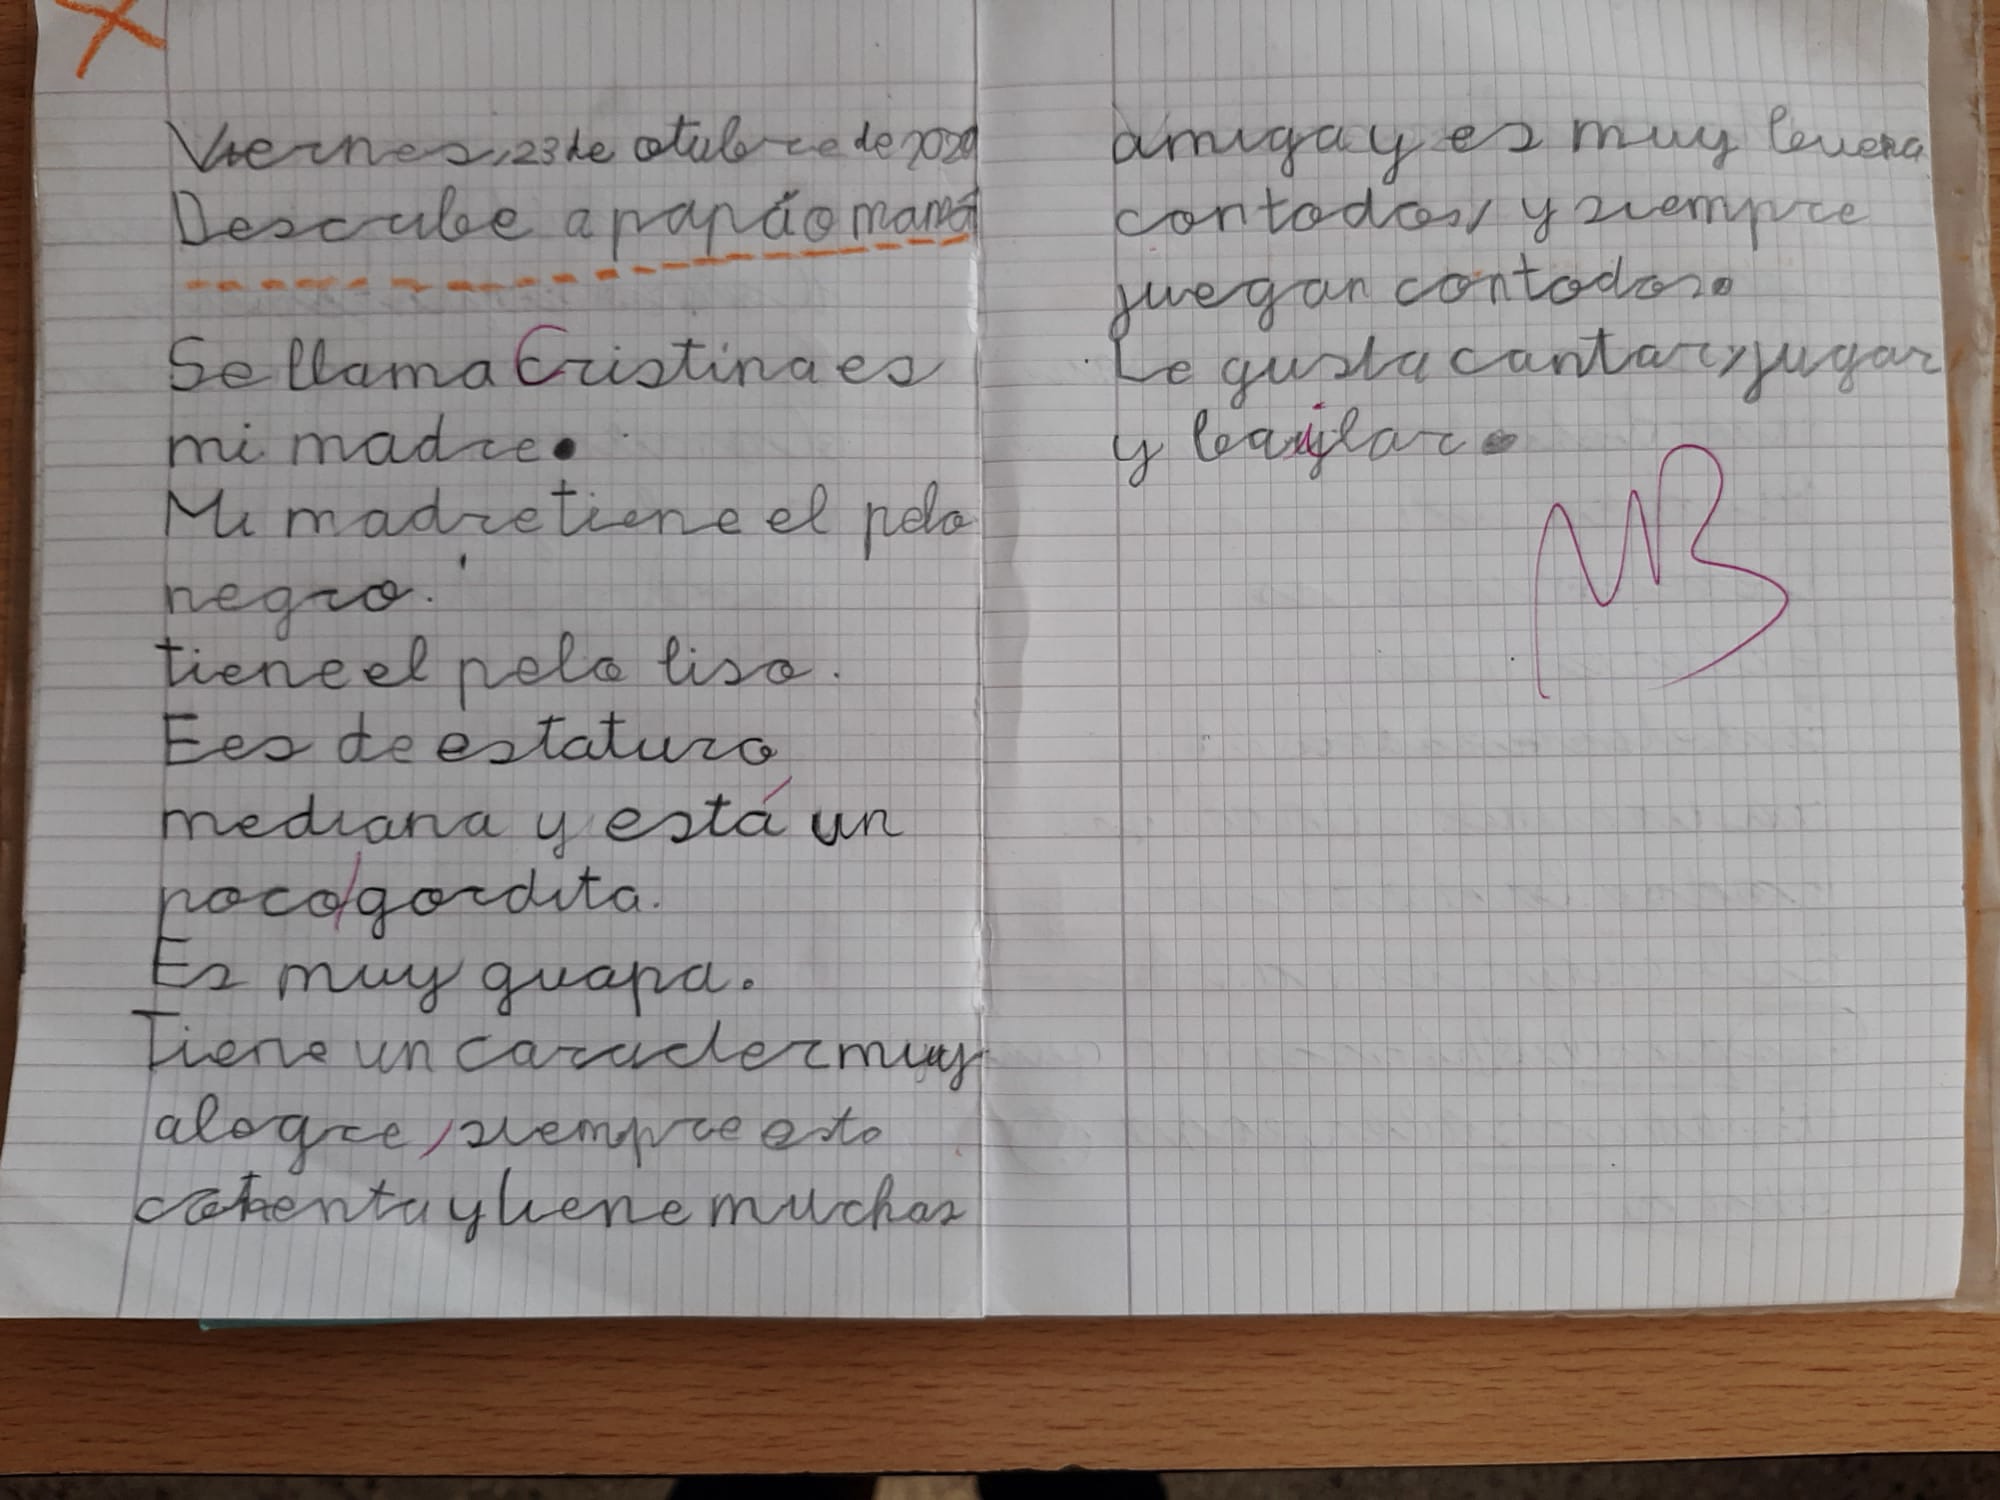 Viernes, 23 de otubre de 2020
Describe a papá o mamá
Se llama Cristina es
mi madre.
Mi madre tiene el pelo
negro.
tiene el pelo liso.
Ees de estatura
mediana y está un
poco/gordita.
Es muy guapa.
Tiene un caracter muy
alegre, siempre esta
contenta y tiene muchas
amiga y es muy buena
con todos, y siempre
juegan con todos.
Le gusta cantar, jugar
y bailar.
MB